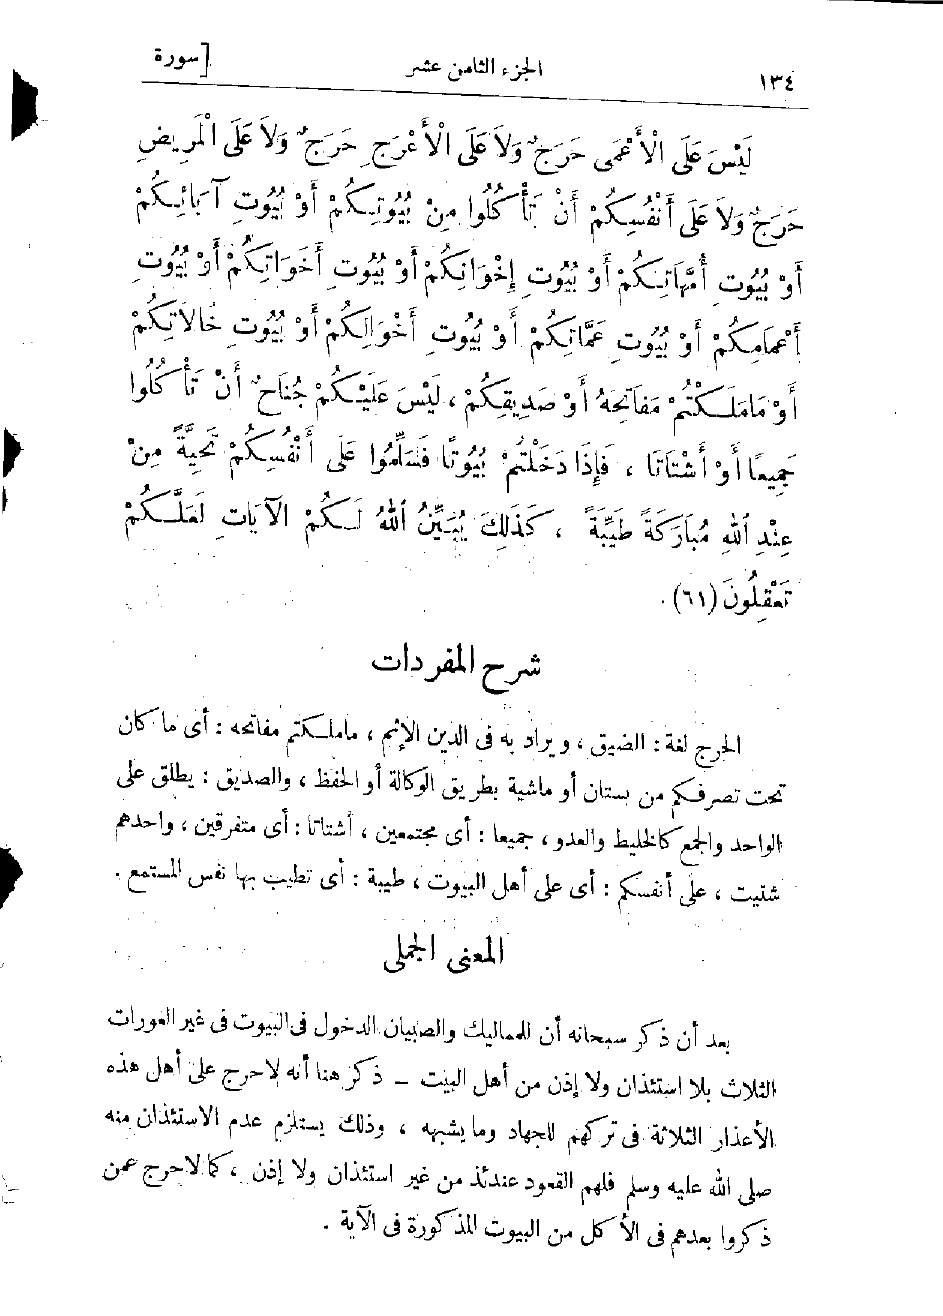 ١٣٤ الجزء الثامن عشر [سورة
لَيْسَ عَلَى الْأَعْمَى حَرَجٌ وَلَا عَلَى الْأَعْرَجِ حَرَجٌ وَلَا عَلَى الْمَرِيضِ
حَرَجٌ وَلَا عَلَى أَنْفُسِكُمْ أَنْ تَأْكُلُوا مِنْ بُيُوتِكُمْ أَوْ بُيُوتِ آبَائِكُمْ
أَوْ بُيُوتِ أُمَّهَاتِكُمْ أَوْ بُيُوتِ إِخْوَانِكُمْ أَوْ بُيُوتِ أَخَوَاتِكُمْ أَوْ بُيُوتِ
أَعْمَامِكُمْ أَوْ بُيُوتِ عَمَّاتِكُمْ أَوْ بُيُوتِ أَخْوَالِكُمْ أَوْ بُيُوتِ خَالَاتِكُمْ
أَوْ مَا مَلَكْتُمْ مَفَاتِحَهُ أَوْ صَدِيقِكُمْ، لَيْسَ عَلَيْكُمْ جُنَاحٌ أَنْ تَأْكُلُوا
جَمِيعًا أَوْ أَشْتَاتًا، فَإِذَا دَخَلْتُمْ بُيُوتًا فَسَلِّمُوا عَلَى أَنْفُسِكُمْ تَحِيَّةً مِنْ
عِنْدِ اللهِ مُبَارَكَةً طَيِّبَةً، كَذَلِكَ يُبَيِّنُ اللهُ لَكُمُ الْآيَاتِ لَعَلَّكُمْ
تَعْقِلُونَ (٦١).
شرح المفردات
الحرج لغة: الضيق، ويراد به فى الدين الإثم، ماملكتم مفاتحه: أى ما كان
تحت تصرفكم من بستان أو ماشية بطريق الوكالة أو الحفظ، والصديق: يطلق على
الواحد والجمع كالخليط والعدو، جميعا: أى مجتمعين، أشتاتا: أى متفرقين، واحدهم
شتيت، على أنفسكم: أى على أهل البيوت، طيبة: أى تطيب بها نفس المستمع.
المعنى الجملى
بعد أن ذكر سبحانه أن للمماليك والصبيان الدخول فى البيوت فى غير العورات
الثلاث بلا استئذان ولا إذن من أهل البيت – ذكر هنا أنه لا حرج على أهل هذه
الأعذار الثلاثة فى تركهم للجهاد وما يشبهه، وذلك يستلزم عدم الاستئذان منه
صلى الله عليه وسلم فلهم القعود عندئذ من غير استئذان ولا إذن، كما لا حرج عمن
ذكروا بعدهم فى الأكل من البيوت المذكورة فى الآية.